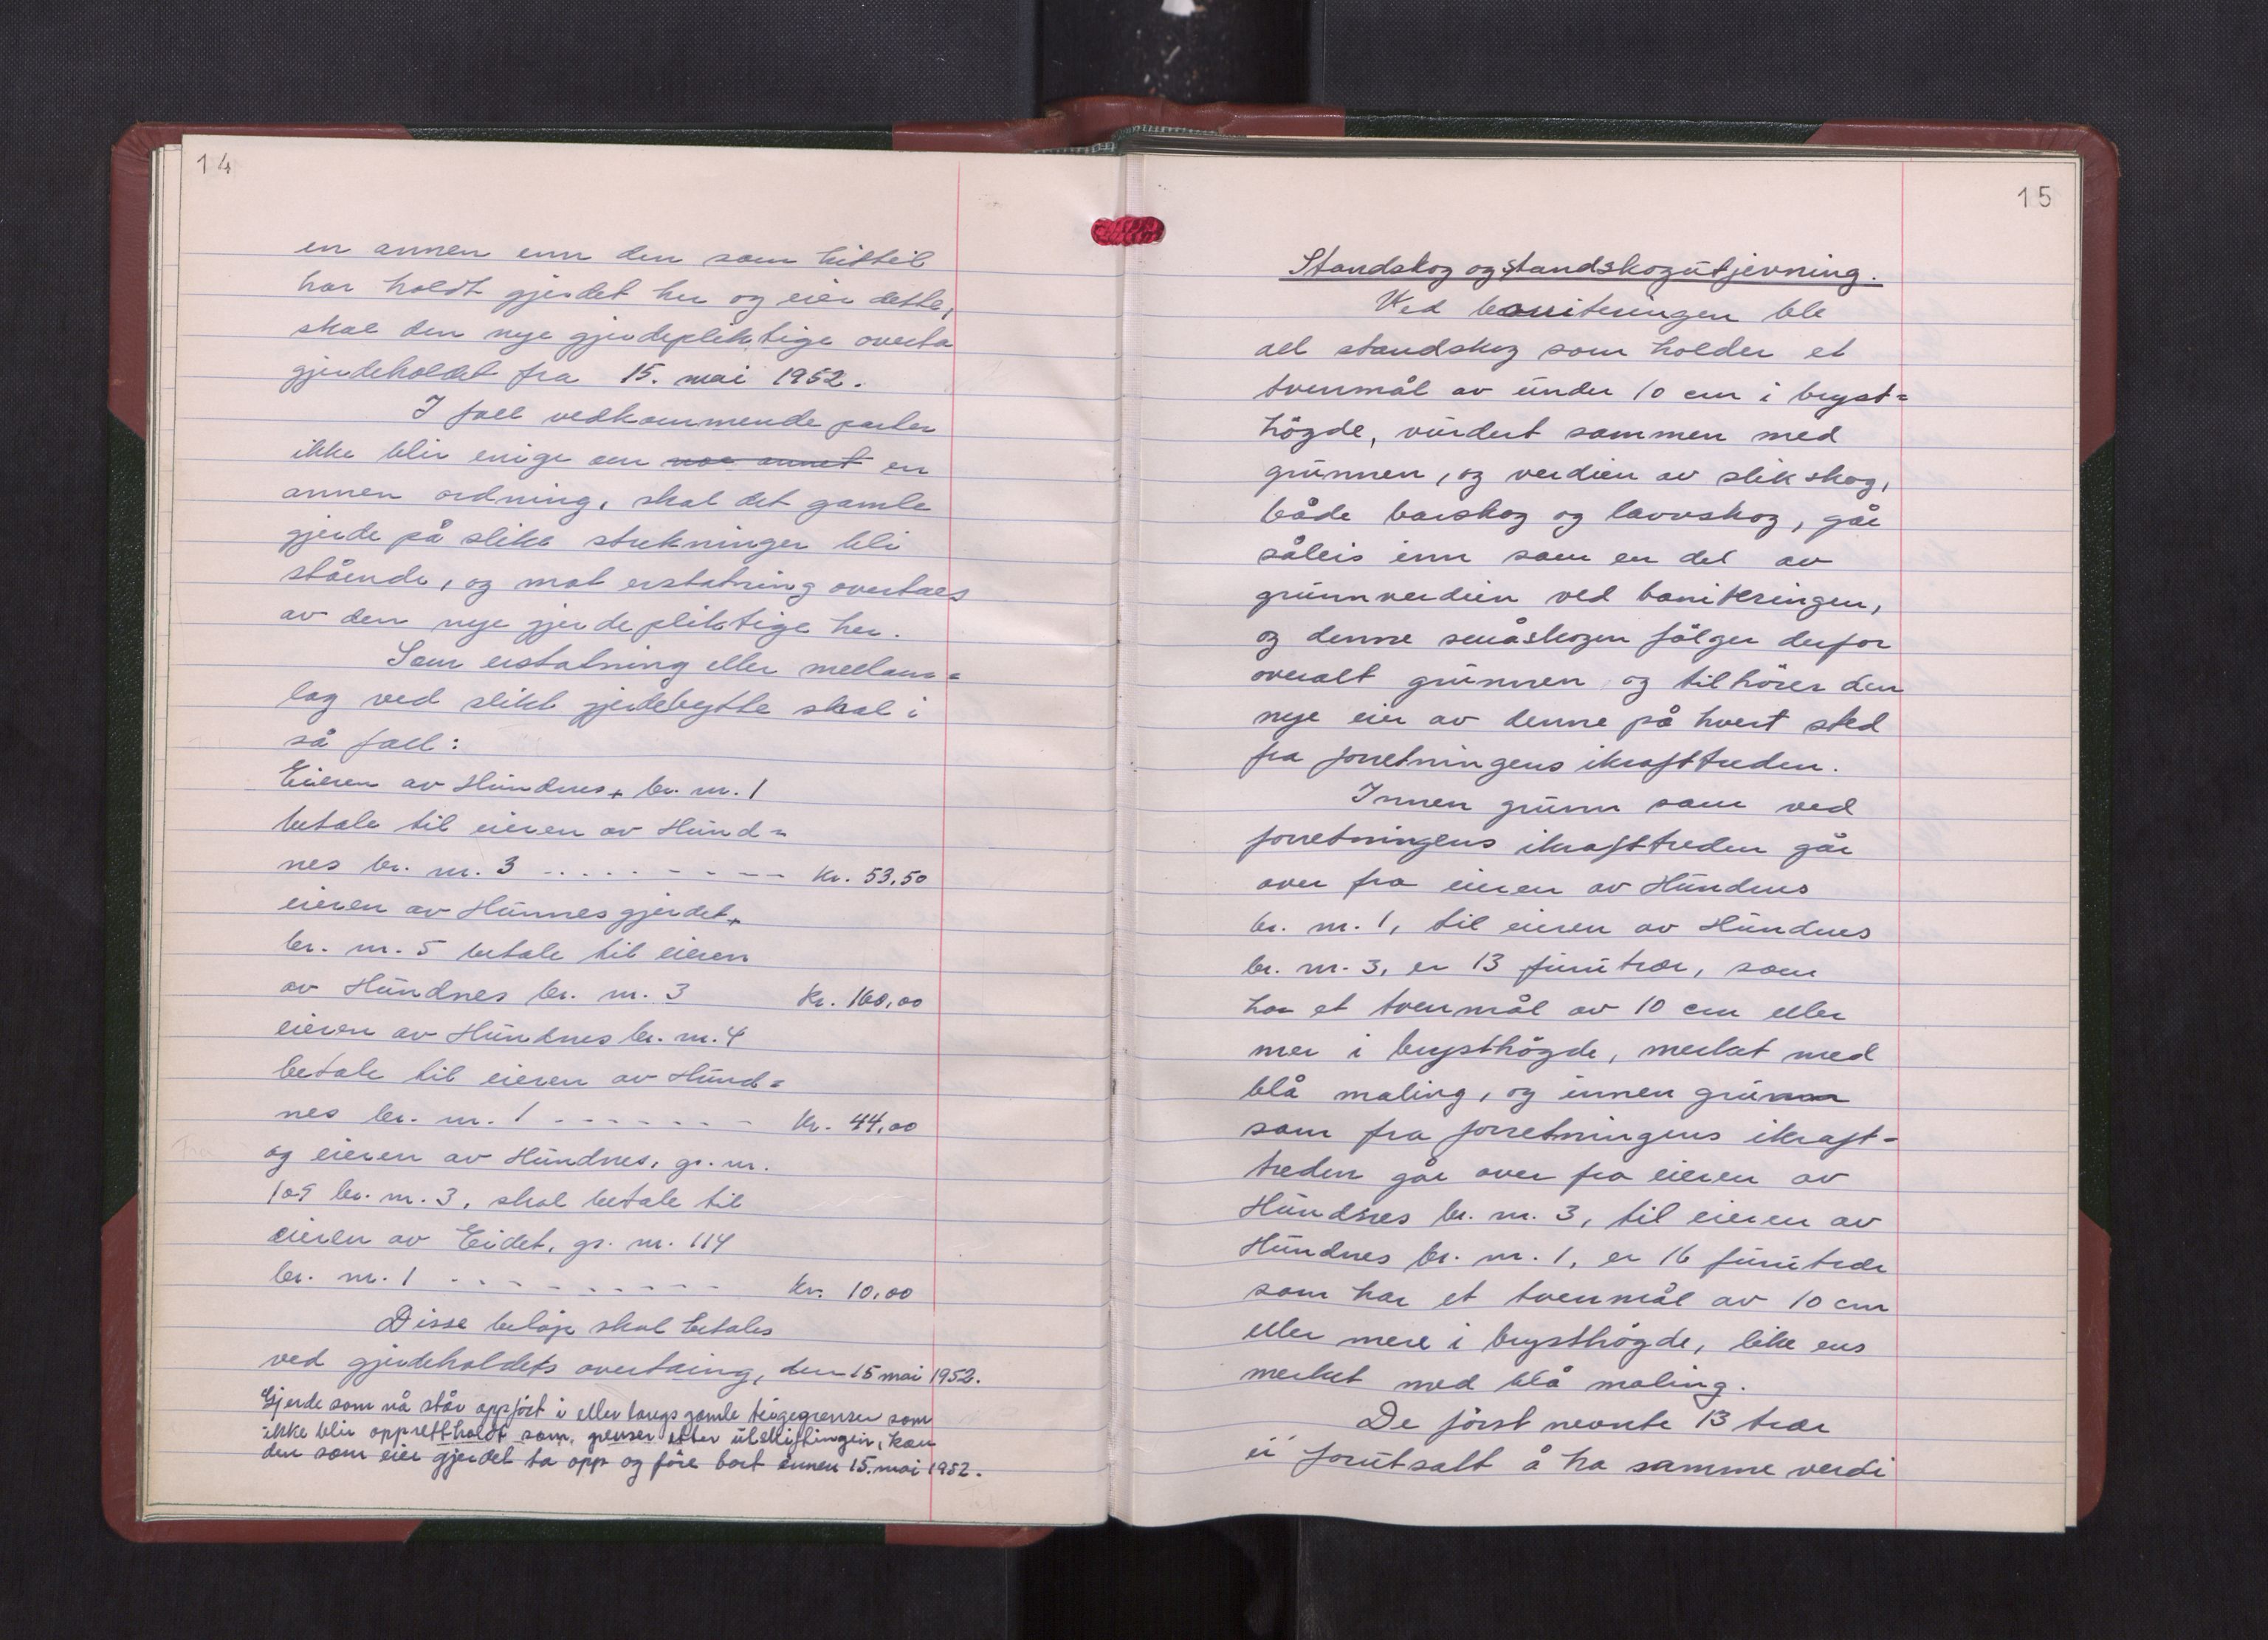 14
en annen enn den som hittil
har holdt gjerdet her og eier dette,
skal den nye gjerdepliktige overta
gjerdeholdet fra 15. mai 1952.
I fall vedkommende parter
ikke blir enige om noe annet en
annen ordning, skal det gamle
gjerde på slike strekninger bli
stående, og mot erstatning overtaes
av den nye gjerdepliktige her.
Som erstatning eller mellom=
lag ved slikt gjerdebytte skal i
så fall:
Eieren av Hundnes, br. nr. 1
betale til eieren av Hund=
nes br. nr. 3 - - - - - - - - - kr. 53,50
eieren av Hunnesgjerdet,
br. nr. 5 betale til eieren
av Hundnes br. nr. 3 kr. 160,00
eieren av Hundnes br. nr. 4
betale til eieren av Hund=
nes br. nr. 1 - - - - - - kr. 44,00
og eieren av Hundnes, gr. nr.
109 br. nr. 3, skal betale til
eieren av Eidet, gr. nr. 114
br. nr. 1 - - - - - - - - - kr. 10,00
Disse beløp skal betales
ved gjerdeholdets overtaing, den 15 mai 1952.
Gjerde som nå står oppført i eller langs gamle teiggrenser som
ikke blir opprettholdt som grenser etter utskiftingen, kan
den som eier gjerdet ta opp og føre bort innen 15. mai 1952.
15
Standskog og standskogutjevning.
Ved boniteringen ble
all standskog som holder et
tvermål av under 10 cm i bryst=
högde, vurdert sammen med
grunnen, og verdien av slik skog,
både barskog og lauvskog, går
såleis inn som en del av
grunnverdien ved boniteringen,
og denne småskogen følger derfor
overalt grunnen og tilhører den
nye eier av denne på hvert sted
fra forretningens ikrafttreden.
Innen grunn som ved
forretningens ikrafttreden går
over fra eieren av Hundnes
br. nr. 1, til eieren av Hundnes
br. nr. 3, er 13 furutrær, som
har et tvermål av 10 cm eller
mer i brysthögde, merket med
blå maling, og innen grunn
som fra forretningens ikraft-
treden går over fra eieren av
Hundnes br. nr. 3, til eieren av
Hundnes br. nr. 1, er 16 furutrær
som har et tvermål av 10 cm
eller mere i brysthögde, like ens
merket med blå maling.
De først nevnte 13 trær
er forutsatt å ha samme verdi